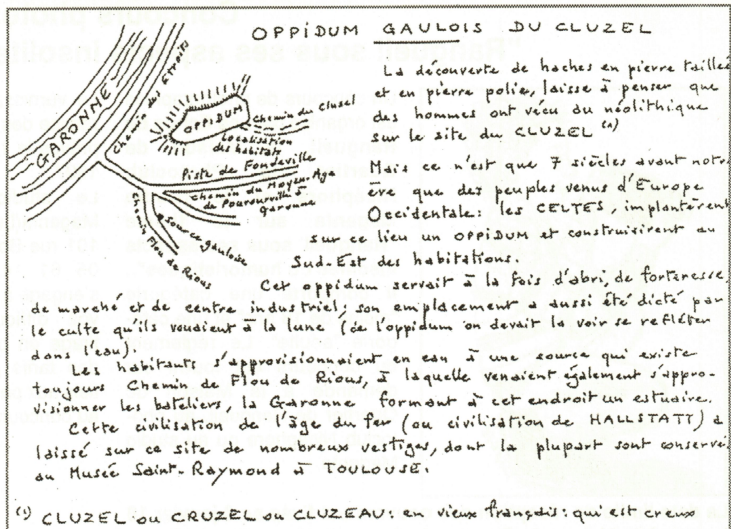 OPPIDUM GAULOIS DU CLUZEL
GARONNE
Chemin des Etroits
OPPIDUM
Chemin du Clusel
Localisation
des habitats
Piste de Fondeville
Chemin du Moyen-Age
de Poursurville à
garonne
Source gauloise
Chemin Flou de Rious
La découverte de haches en pierre taillée
et en pierre polie, laisse à penser que
des hommes ont vécu au néolithique
sur le site du CLUZEL (1)
Mais ce n'est que 7 siècles avant notre
ère que des peuples venus d'Europe
Occidentale: les CELTES, implantèrent
sur ce lieu un OPPIDUM et construisirent au
Sud-Est des habitations.
Cet oppidum servait à la fois d'abri, de forteresse,
de marché et de centre industriel; son emplacement a aussi été dicté par
le culte qu'ils vouaient à la lune (de l'oppidum on devait la voir se refléter
dans l'eau).
Les habitants s'approvisionnaient en eau à une source qui existe
toujours Chemin de Flou de Rious, à laquelle venaient également s'appro-
visionner les bateliers, la Garonne formant à cet endroit un estuaire.
Cette civilisation de l'âge du fer (ou civilisation de HALLSTATT) a
laissé sur ce site de nombreux vestiges, dont la plupart sont conservés
au Musée Saint-Raymond à TOULOUSE.
(1) CLUZEL ou CRUZEL ou CLUZEAU: en vieux français: qui est creux